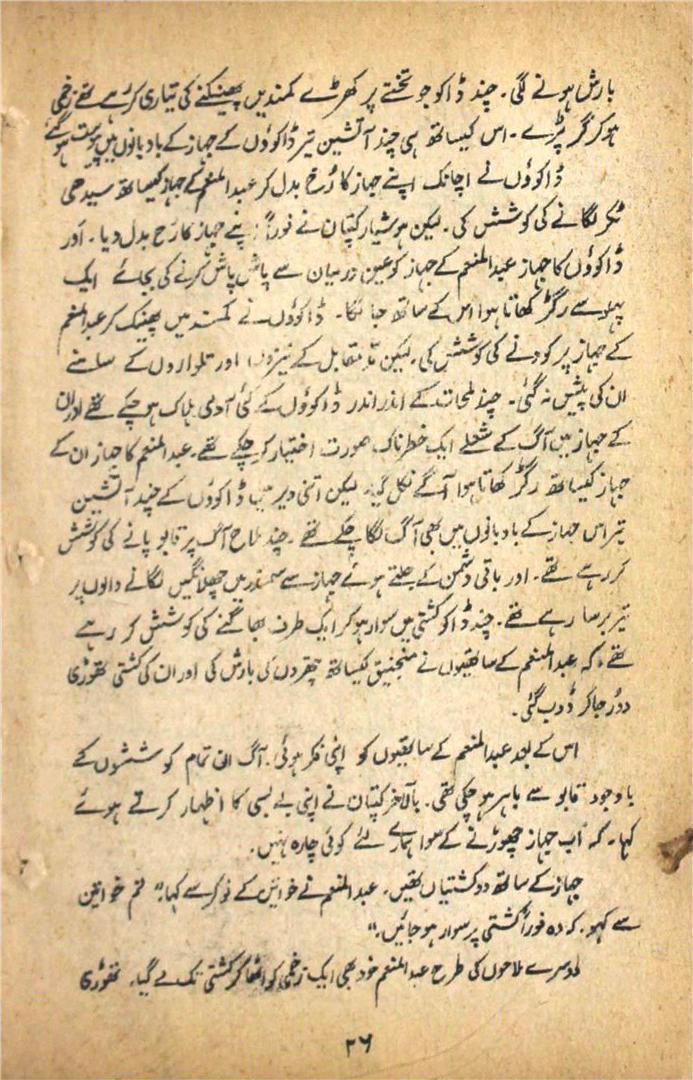 بارش ہونے لگی۔ چند ڈاکو جو تختے پر کھڑے کمندیں پھینکنے کی تیاری کر رہے تھے زخمی
ہو کر گر پڑے۔ اس کیساتھ ہی چند آتشین تیر ڈاکوؤں کے جہاز کے بادبانوں میں پیوست ہو گئے
ڈاکوؤں نے اچانک اپنے جہاز کا رُخ بدل کر عبدالمنعم کے جہاز کیساتھ سیدھی
ٹکر لگانے کی کوشش کی۔ لیکن ہوشیار کپتان نے فوراً اپنے جہاز کا رُخ بدل دیا۔ اور
ڈاکوؤں کا جہاز عبدالمنعم کے جہاز کو عین درمیان سے پاش پاش کرنے کی بجائے ایک
پہلو سے رگڑ کھاتا ہوا اس کے ساتھ جا لگا۔ ڈاکوؤں نے کمندیں پھینک کر عبدالمنعم
کے جہاز پر کودنے کی کوشش کی۔ لیکن مدّمقابل کے نیزوں اور تلواروں کے سامنے
ان کی پیش نہ گئی۔ چند لمحات کے اندر اندر ڈاکوؤں کے کئی آدمی ہلاک ہو چکے تھے اور ان
کے جہاز میں آگ کے شعلے ایک خطرناک صورت اختیار کر چکے تھے۔ عبدالمنعم کا جہاز ان کے
جہاز کیساتھ رگڑ کھاتا ہوا آگے نکل گیا۔ لیکن اتنی دیر میں ڈاکوؤں کے چند آتشین
تیر اس جہاز کے بادبانوں میں بھی آگ لگا چکے تھے۔ چند ملاح آگ پر قابو پانے کی کوشش
کر رہے تھے۔ اور باقی دشمن کے جلتے ہوئے جہاز سے سمندر میں چھلانگیں لگانے والوں پر
تیر برسا رہے تھے۔ چند ڈاکو کشتی میں سوار ہو کر ایک طرف بھاگنے کی کوشش کر رہے
تھے، کہ عبدالمنعم کے ساتھیوں نے منجنیق کیساتھ پتھروں کی بارش کی اور ان کی کشتی تھوڑی
دور جا کر ڈوب گئی۔
اس کے بعد عبدالمنعم کے ساتھیوں کو اپنی فکر ہوئی۔ آگ ان تمام کوششوں کے
باوجود قابو سے باہر ہو چکی تھی۔ بالآخر کپتان نے اپنی بے بسی کا اظہار کرتے ہوئے
کہا۔ کہ اب جہاز چھوڑنے کے سوا ہمارے لئے کوئی چارہ نہیں۔
جہاز کے ساتھ دو کشتیاں تھیں۔ عبدالمنعم نے خواتین کے نوکر سے کہا۔" تم خواتین
سے کہو۔ کہ وہ فوراً کشتی پر سوار ہو جائیں۔"
دوسرے ملاحوں کی طرح عبدالمنعم خود بھی ایک زخمی کو اٹھا کر کشتی تک لے گیا۔ تھوڑی
۲۶